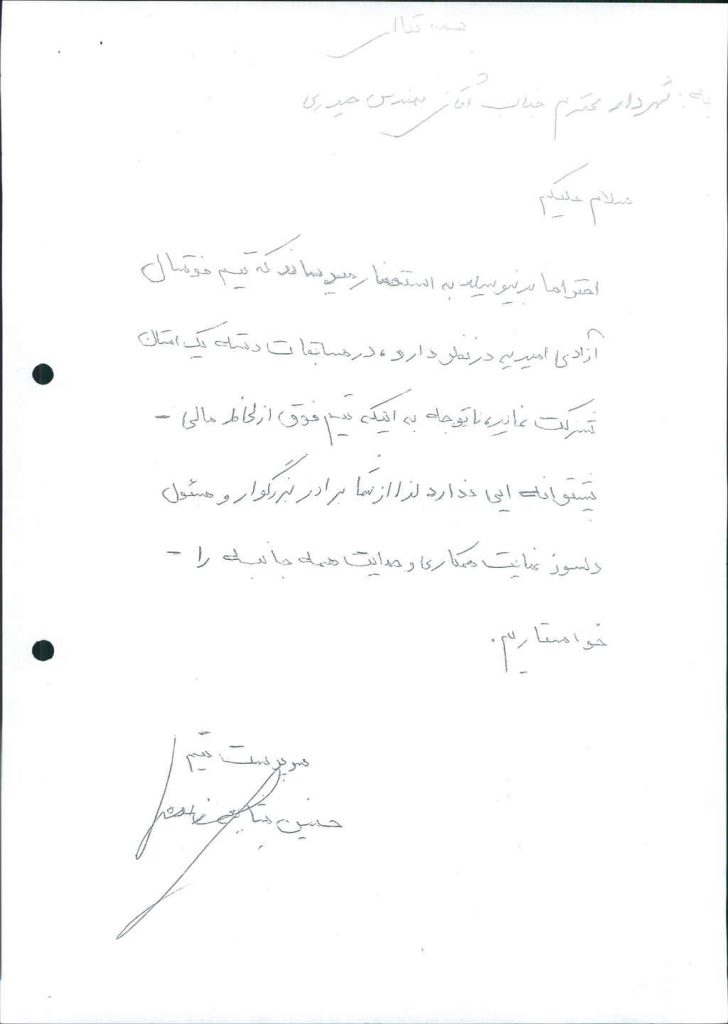 بسمه تعالی
به: شهردار محترم جناب آقای مهندس حیدری
سلام علیکم
احتراما بدینوسیله به استحضار میرساند که تیم فوتسال
آزادی امیریه در نظر دارد، در مسابقات دسته یک استان
شرکت نماید، با توجه به اینکه تیم فوق از لحاظ مالی -
پشتوانه ایی ندارد لذا از شما برادر بزرگوار و مسئول
دلسوز نهایت همکاری و حمایت همه جانبه را -
خواستاریم.
سرپرست تیم
حسین